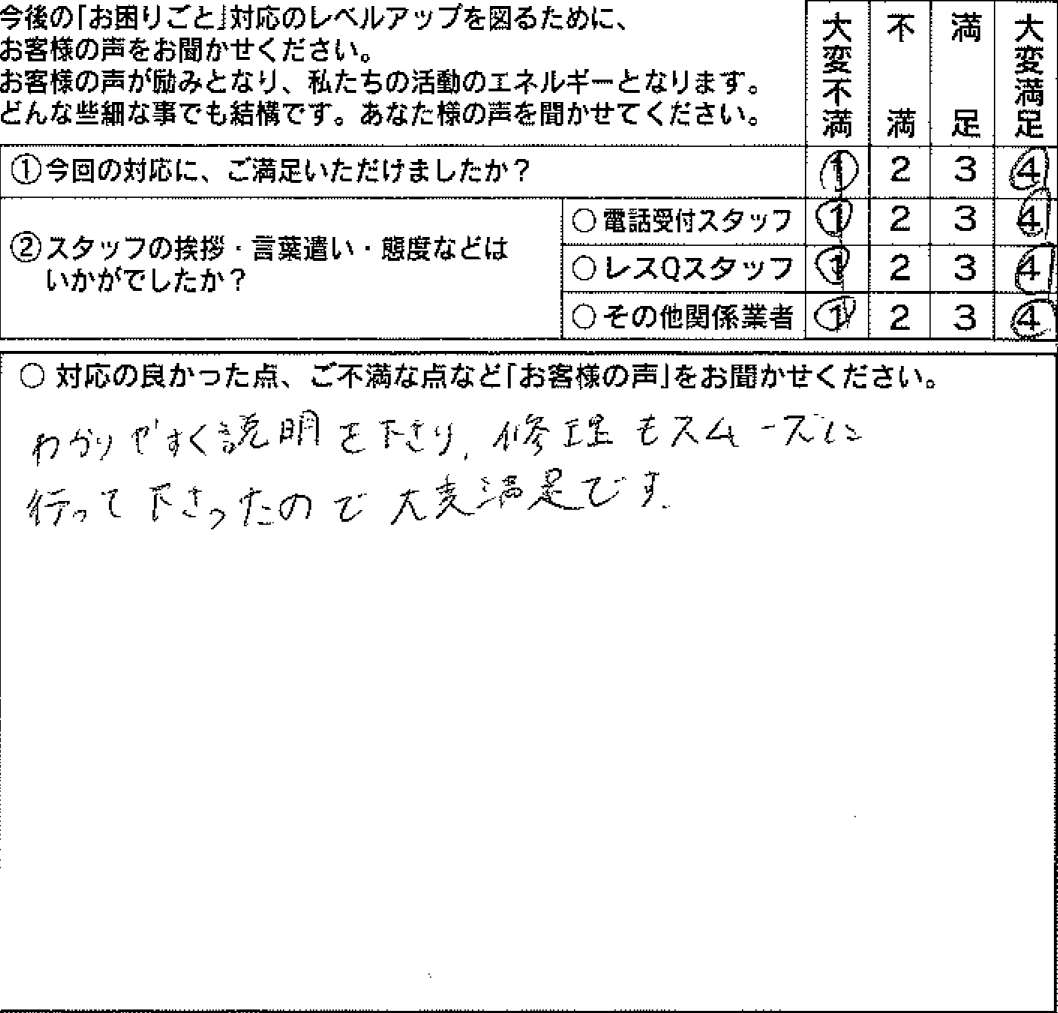 今後の「お困りごと」対応のレベルアップを図るために、
お客様の声をお聞かせください。
お客様の声が励みとなり、私たちの活動のエネルギーとなります。
どんな些細な事でも結構です。あなた様の声を聞かせてください。
大変不満 不満 満足 大変満足
①今回の対応に、ご満足いただけましたか？ 1 2 3 4
②スタッフの挨拶・言葉遣い・態度などは
いかがでしたか？
○電話受付スタッフ 1 2 3 4
○レスQスタッフ 1 2 3 4
○その他関係業者 1 2 3 4
○ 対応の良かった点、ご不満な点など「お客様の声」をお聞かせください。
わかりやすく説明を下さり、修理もスムーズに
行って下さったので大変満足です.